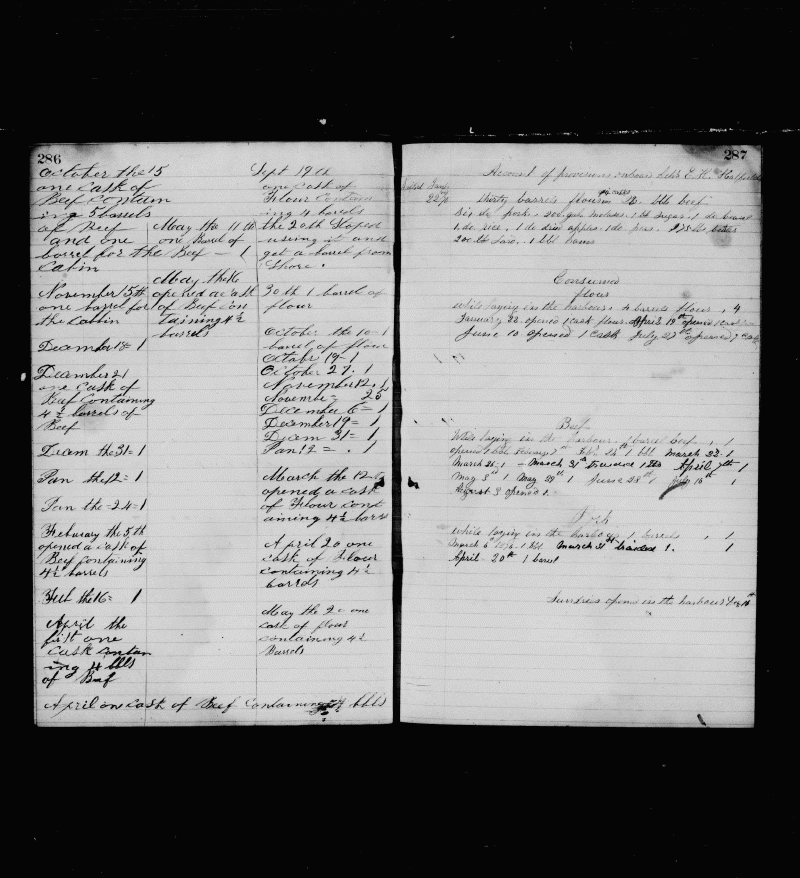 286
October the 15
one cask of
Beef Contain
ing 5 barrels
of Beef
and one
barrel for the
Cabin
November 15th
one barrel for
the Cabbin
December 18= 1
December 21
one cask of
Beef Containing
4½ barrels of
Beef
Decem the 31= 1
Jan the 12= 1
Jan the 24= 1
Feburary the 5th
opened a cask of
Beef Containing
4½ barrels
Feb the 16= 1
April the
first one
Cask contan
ing 4 bbls
of Beef
April one cask of Beef Containing bbls
May the 11
one barrel of
Beef — 1
May the 16
opened a cask
of Beef Con
taining 4½
barrels
Sept 19th
one cask of
Flour Contain
ing 4 barrels
the 20th Stoped
using it and
got a barrel from
Shore.
30th 1 barrel of
flour
October the 10= 1
barrel of flour
October 19= 1
October 27. 1
November 12. 1
November 25
December 6= 1
December 19= 1
Decem 31= 1
Jan 12= . 1
March the 12
opened a cask
of Flour Cont
aining 4½ bars
April 20 one
cask of Flour
containing 4½
barrels
May the 20 one
cask of flour
containing 4½
Barrels
287
Account of provisions onboard Schr
thirty barrels flour in casks bbl beef
Six do pork. 1 bbl Sugar. 1 do bread
1. do. rice. 1 do dried apples. 1 do. peas.
200 lbs
Consumed
flour
while laying in the harbour 4 barrels flour , 4
January 22 opened 1 cask flour April 19th opened 1 cask
June 10 opened 1 Cask July 27th opened 1 Cask
Beef
While laying in the harbour. 1 barrel beef , 1
opened 1 bbl Feb. 1 bbl March 22. 1
March 26. 1 — March 31st 1 bbl April 7th 1
May 3rd 1 May 29th 1 June 28th 1 July 16th 1
August 3 opened 1.
Pork
while laying in the harbour 1 barrels , 1
March 6th 1 bbl March 31st 1. 1
April 20th 1 barrel
Sundries opened in the harbour